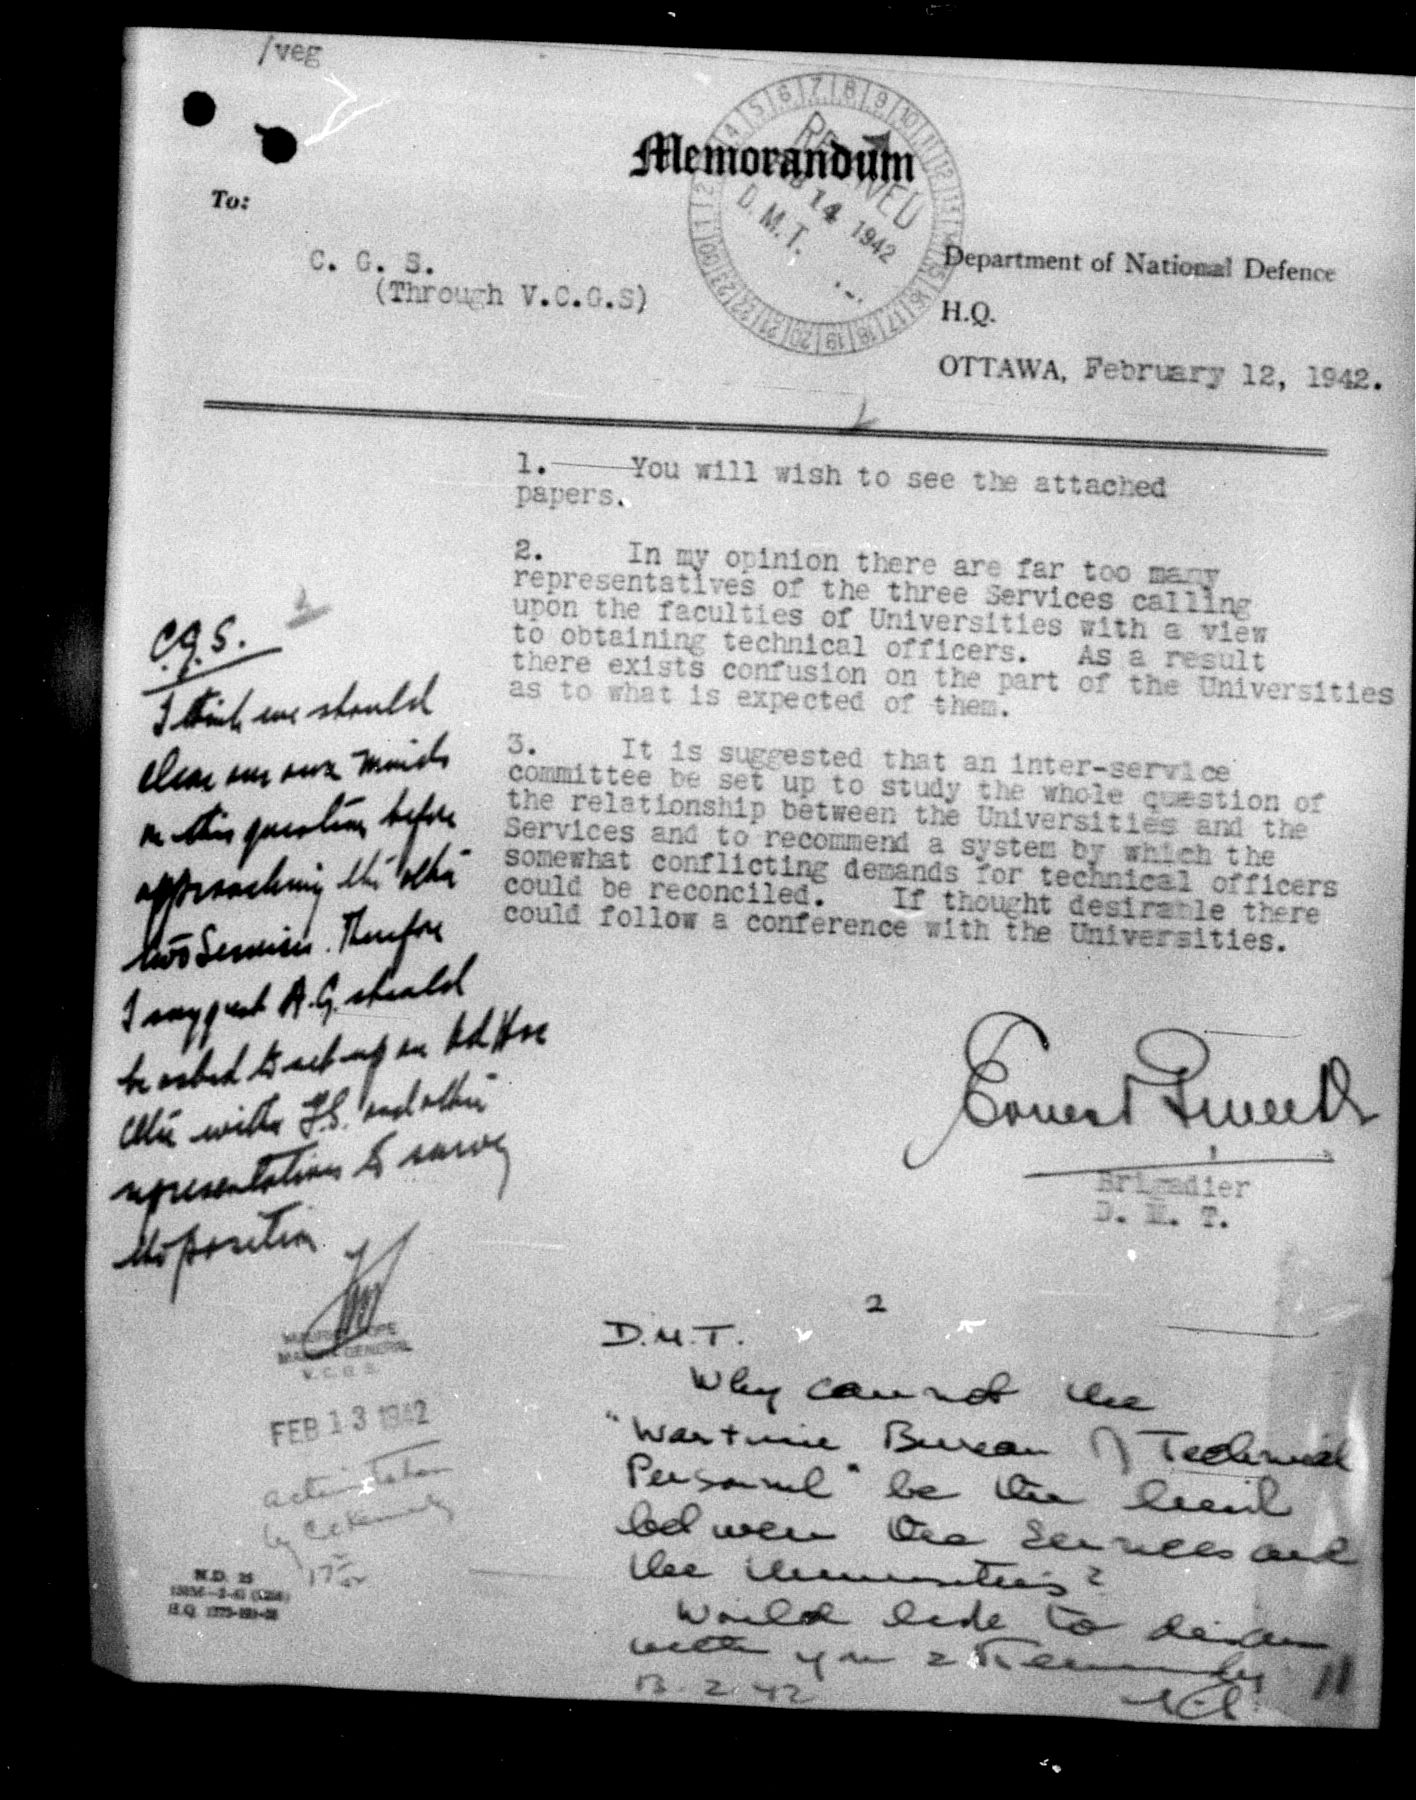 /veg
Memorandum
RECEIVED
FEB 14 1942
D.M.T.
To:
C. G. S.
(Through V.C.G.S)
Department of National Defence
H.Q.
OTTAWA, February 12, 1942.
1. You will wish to see the attached
papers.
2. In my opinion there are far too many
representatives of the three Services calling
upon the faculties of Universities with a view
to obtaining technical officers. As a result
there exists confusion on the part of the Universities
as to what is expected of them.
3. It is suggested that an inter-service
committee be set up to study the whole question of
the relationship between the Universities and the
Services and to recommend a system by which the
somewhat conflicting demands for technical officers
could be reconciled. If thought desirable there
could follow a conference with the Universities.
Brigadier
D. M. T.
C.G.S.
I think we should
clear our own minds
on this question before
approaching the other
two Services. Therefore
I suggest A.G. should
be asked to set up an Ad Hoc
Cttee with G.S. and other
representatives to survey
the position
MAJOR GENERAL
V.C.G.S.
FEB 13 1942
action taken
by
N.D. 25
2
D.M.T.
Why cannot the
"Wartime Bureau of Technical
Personnel" be the
between the Services and
the Universities?
Would like to discuss
with you & Kennedy
13.2.42
11